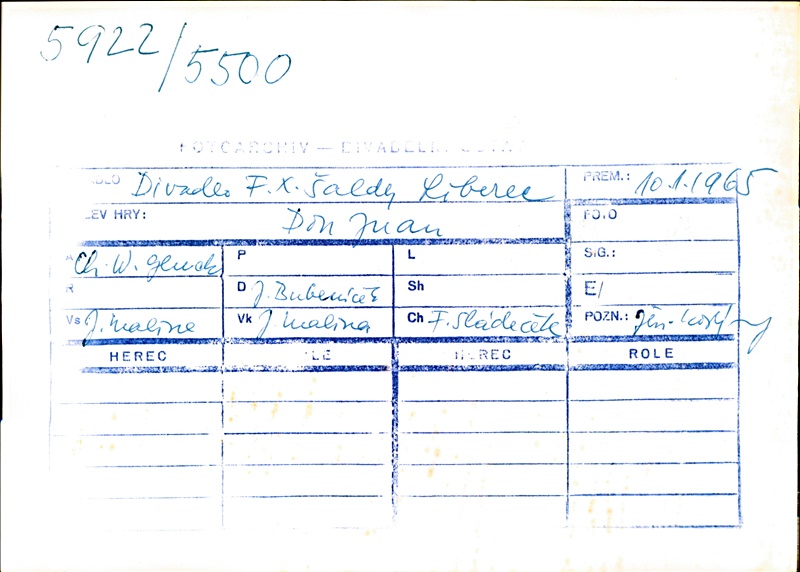 5922/5500
FOTOARCHIV — DIVADELNÍ ÚSTAV
DIVADLO Divadlo F. X. Šaldy Liberec PREM.: 10.1.1965
NÁZEV HRY: Don Juan FOTO
A Ch. W. Gluck P L SIG.:
R D J. Bubeníček Sh E/
Vs J. Malina Vk J. Malina Ch F. Sládeček POZN.:
HEREC ROLE HEREC ROLE